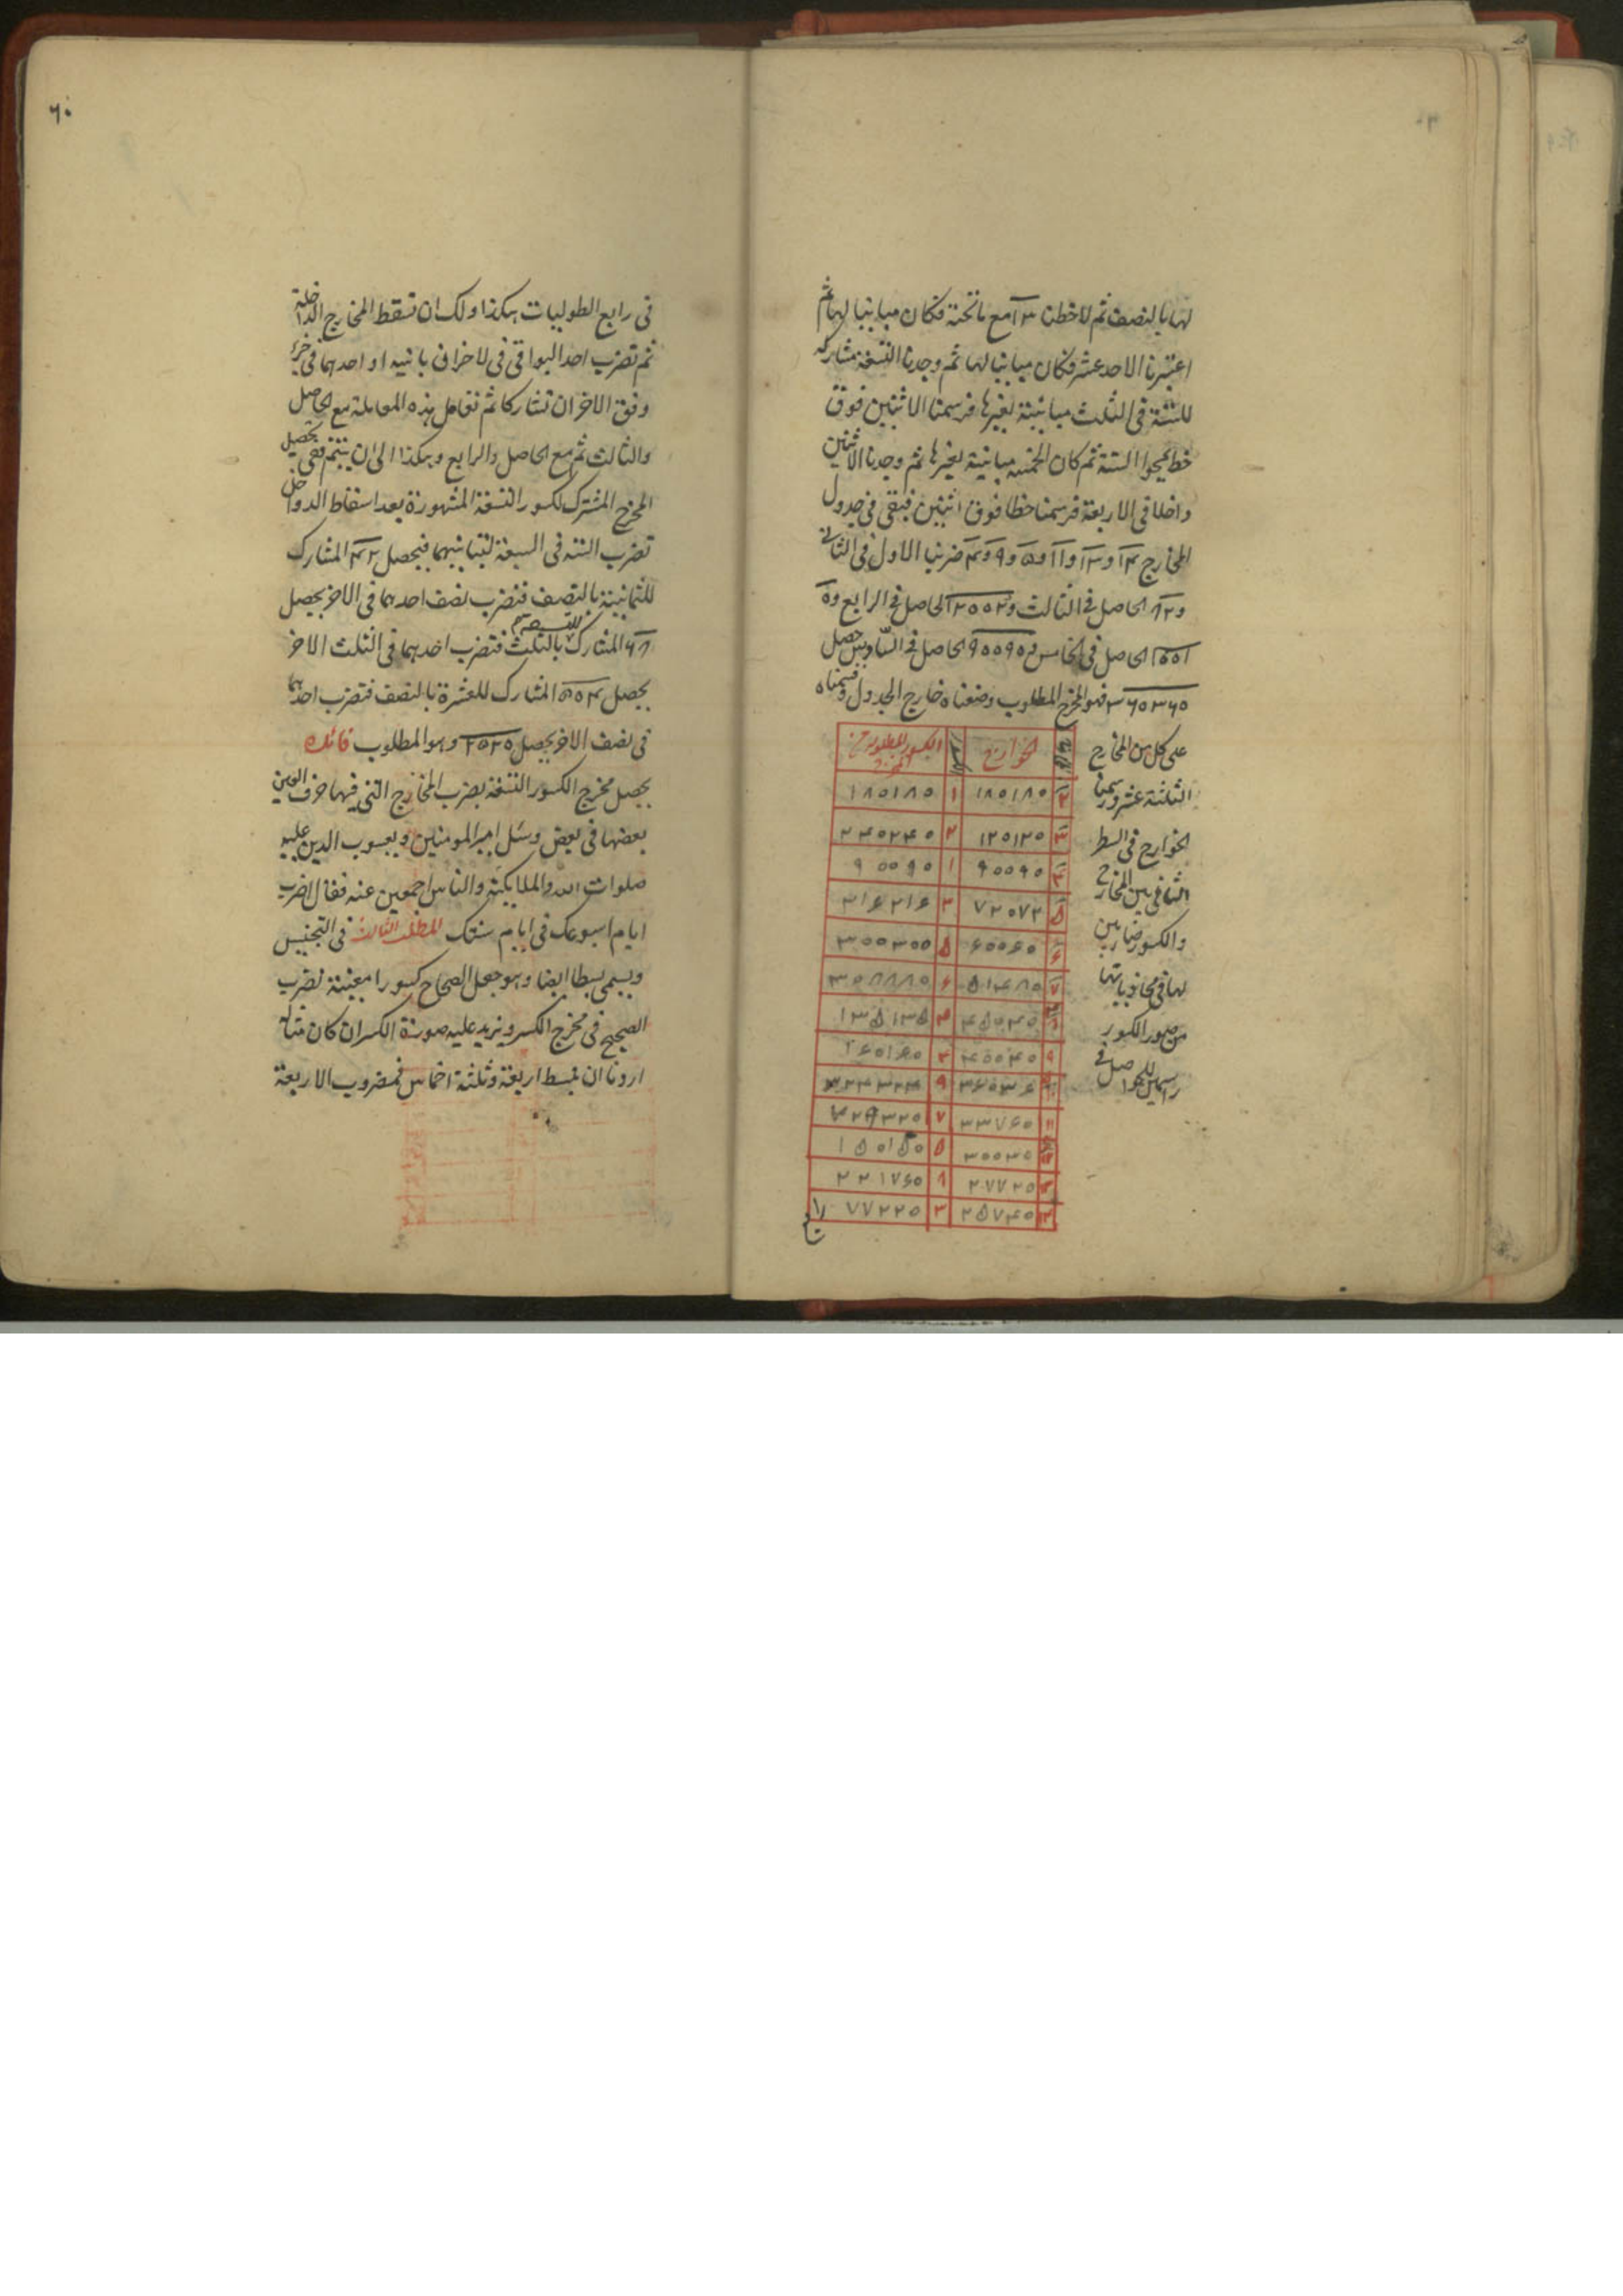 لها بالنصف ثم لاحظنا ١٣ مع ما تحته فكان مباينا لها ثم
اعتبرنا الاحد عشر فكان مباينا لها ثم وجدنا التسعة مشاركة
للستة فى الثلث مباينة لغيرها فرسمنا الاثنين فوق
خط يمحو الستة ثم كان الخمسة مباينة لغيرها ثم وجدنا الاثنين
داخلا فى الاربعة فرسمنا خطا فوق اثنين فبقى فى جدول
المخارج ١٤ و ١٣ و ١١ و ٥ و ٩ و ٤ ضربنا الاول فى الثانى
و ١٨٢ الحاصل فى الثالث و ٢٠٠٢ الحاصل فى الرابع و
١٠٠١٠ الحاصل فى الخامس و ٩٠٠٩٠ الحاصل فى السادس حصل
٣٦٠٣٦٠ فهو المخرج المطلوب وضعناه خارج الجدول وقسمناه
على كل من المخارج
الثلثة عشر ورسمنا
الخوارج فى السطر
الثانى بين المخارج
والكسور ضاربين
لها فى محاذياتها
من صور الكسور
راسمين للحواصل فى
الخوارج الكسور المطلوبة من المخرج
٢ ١٨٠١٨٠ ١ ١٨٠١٨٠
٣ ١٢٠١٢٠ ٢ ٢٤٠٢٤٠
٤ ٩٠٠٩٠ ١ ٩٠٠٩٠
٥ ٧٢٠٧٢ ٣ ٢١٦٢١٦
٦ ٦٠٠٦٠ ٥ ٣٠٠٣٠٠
٧ ٥١٤٨٠ ٦ ٣٠٨٨٨٠
٨ ٤٥٠٤٥ ٣ ١٣٥١٣٥
٩ ٤٠٠٤٠ ٤ ١٦٠١٦٠
١٠ ٣٦٠٣٦ ٩ ٣٢٤٣٢٤
١١ ٣٢٧٦٠ ٧ ٢٢٩٣٢٠
١٢ ٣٠٠٣٠ ٥ ١٥٠١٥٠
١٣ ٢٧٧٢٠ ٨ ٢٢١٧٦٠
١٤ ٢٥٧٤٠ ٣ ٧٧٢٢٠
٦٠
فى رابع الطوليات هكذا ولك ان تسقط المخارج الداخلة
ثم تضرب احد البواقى فى الاخر ان باينه او احدهما فى جزء
وفق الاخر ان تشاركا ثم تعامل هذه المعاملة مع الحاصل
والثالث ثم مع الحاصل والرابع وهكذا الى ان يتم ففى تحصيل
المخرج المشترك لكسور التسعة المشهورة بعد اسقاط الدواخل
تضرب الستة فى السبعة لتباينهما فيحصل ٤٢ المشارك
للثمانية بالنصف فتضرب نصف احدهما فى الاخر يحصل
١٦٨ المشارك للتسعة بالثلث فتضرب احدهما فى الثلث الاخر
يحصل ٥٠٤ المشارك للعشرة بالنصف فتضرب احدهما
فى نصف الاخر يحصل ٢٥٢٠ وهو المطلوب فائدة
يحصل مخرج الكسور التسعة بضرب المخارج التى فيها حرف العين
بعضها فى بعض وسئل امير المومنين ويعسوب الدين عليه
صلوات الله والملائكة والناس اجمعين عنه فقال اضرب
ايام اسبوعك فى ايام سنتك المطلب الثالث فى التجنيس
ويسمى بسطا ايضا وهو جعل الصحاح كسورا معينة تضرب
الصحيح فى مخرج الكسر ونزيد عليه صورة الكسر ان كان مثاله
اردنا ان نبسط اربعة وثلثة اخماس فمضروب الاربعة